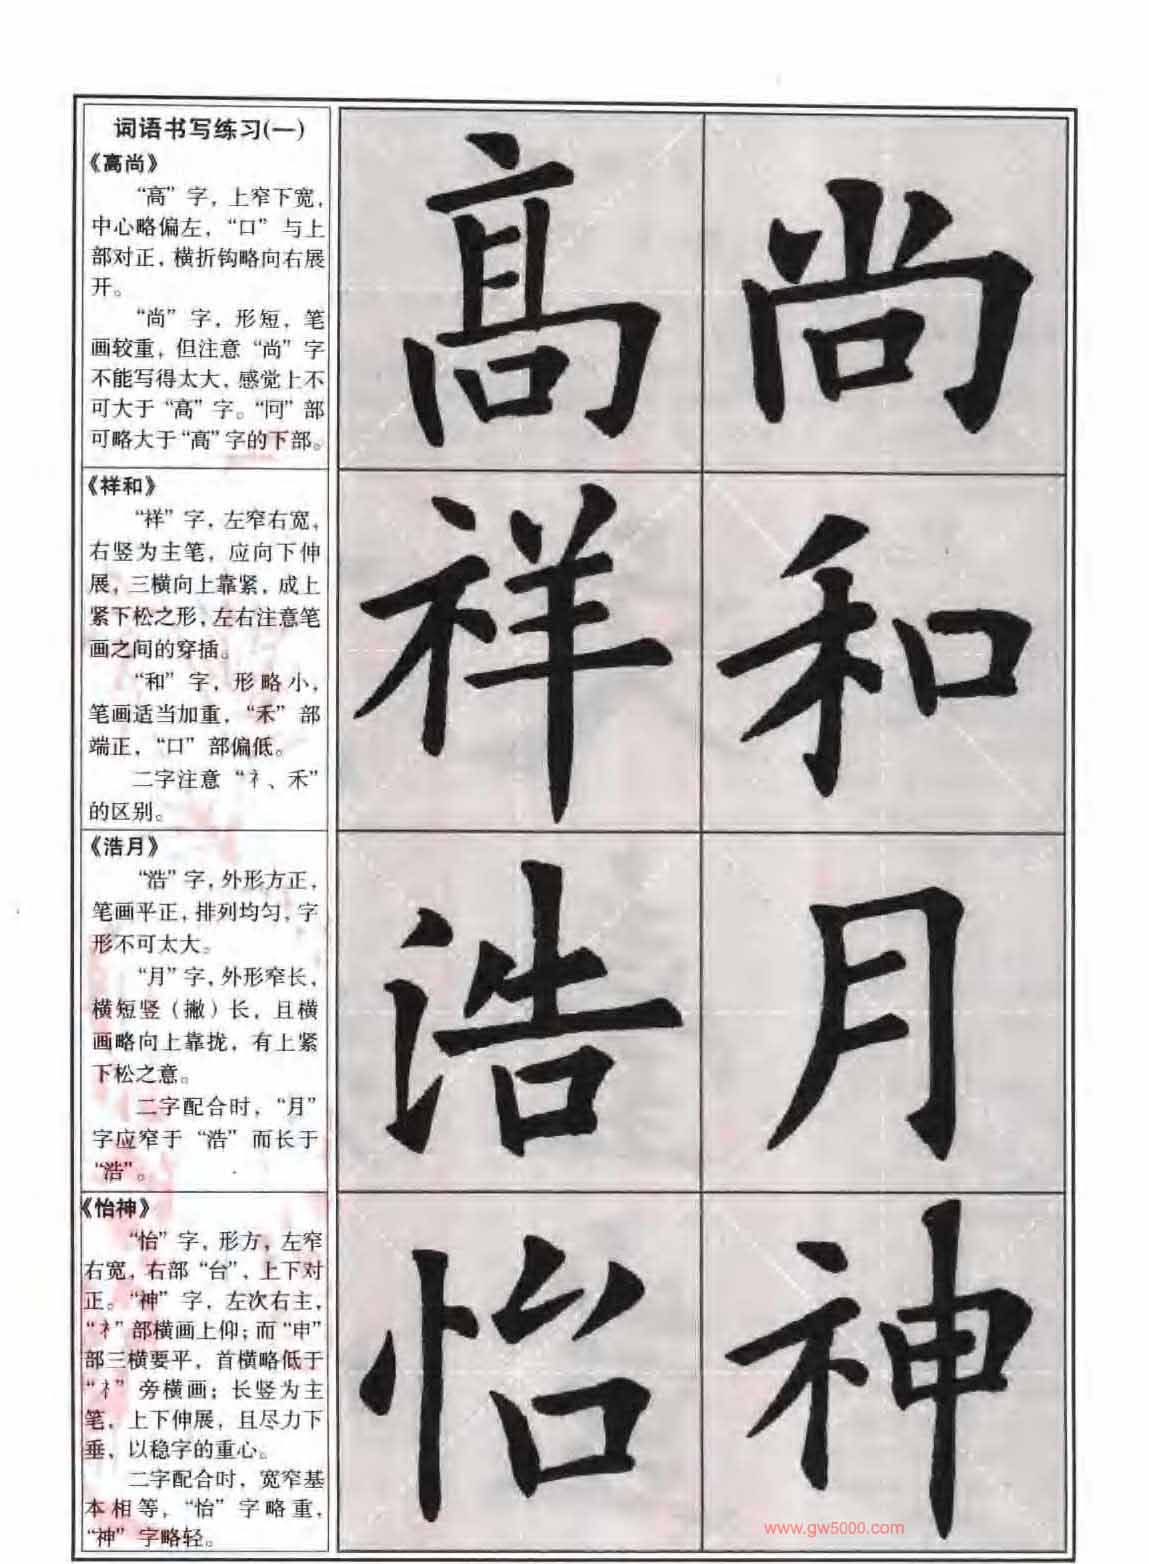 词语书写练习(一)
《高尚》
“高”字，上窄下宽，
中心略偏左，“口”与上
部对正，横折钩略向右展
开。
“尚”字，形短，笔
画较重，但注意“尚”字
不能写得太大，感觉上不
可大于“高”字。“冋”部
可略大于“高”字的下部。
高尚
《祥和》
“祥”字，左窄右宽，
右竖为主笔，应向下伸
展，三横向上靠紧，成上
紧下松之形，左右注意笔
画之间的穿插。
“和”字，形略小，
笔画适当加重，“禾”部
端正，“口”部偏低。
二字注意“礻、禾”
的区别。
祥和
《浩月》
“浩”字，外形方正，
笔画平正，排列均匀，字
形不可太大。
“月”字，外形窄长，
横短竖（撇）长，且横
画略向上靠拢，有上紧
下松之意。
二字配合时，“月”
字应窄于“浩”而长于
“浩”。
浩月
《怡神》
“怡”字，形方，左窄
右宽，右部“台”，上下对
正。“神”字，左次右主，
“礻”部横画上仰；而“申”
部三横要平，首横略低于
“礻”旁横画；长竖为主
笔，上下伸展，且尽力下
垂，以稳字的重心。
二字配合时，宽窄基
本相等，“怡”字略重，
“神”字略轻。
怡神
www.gw5000.com